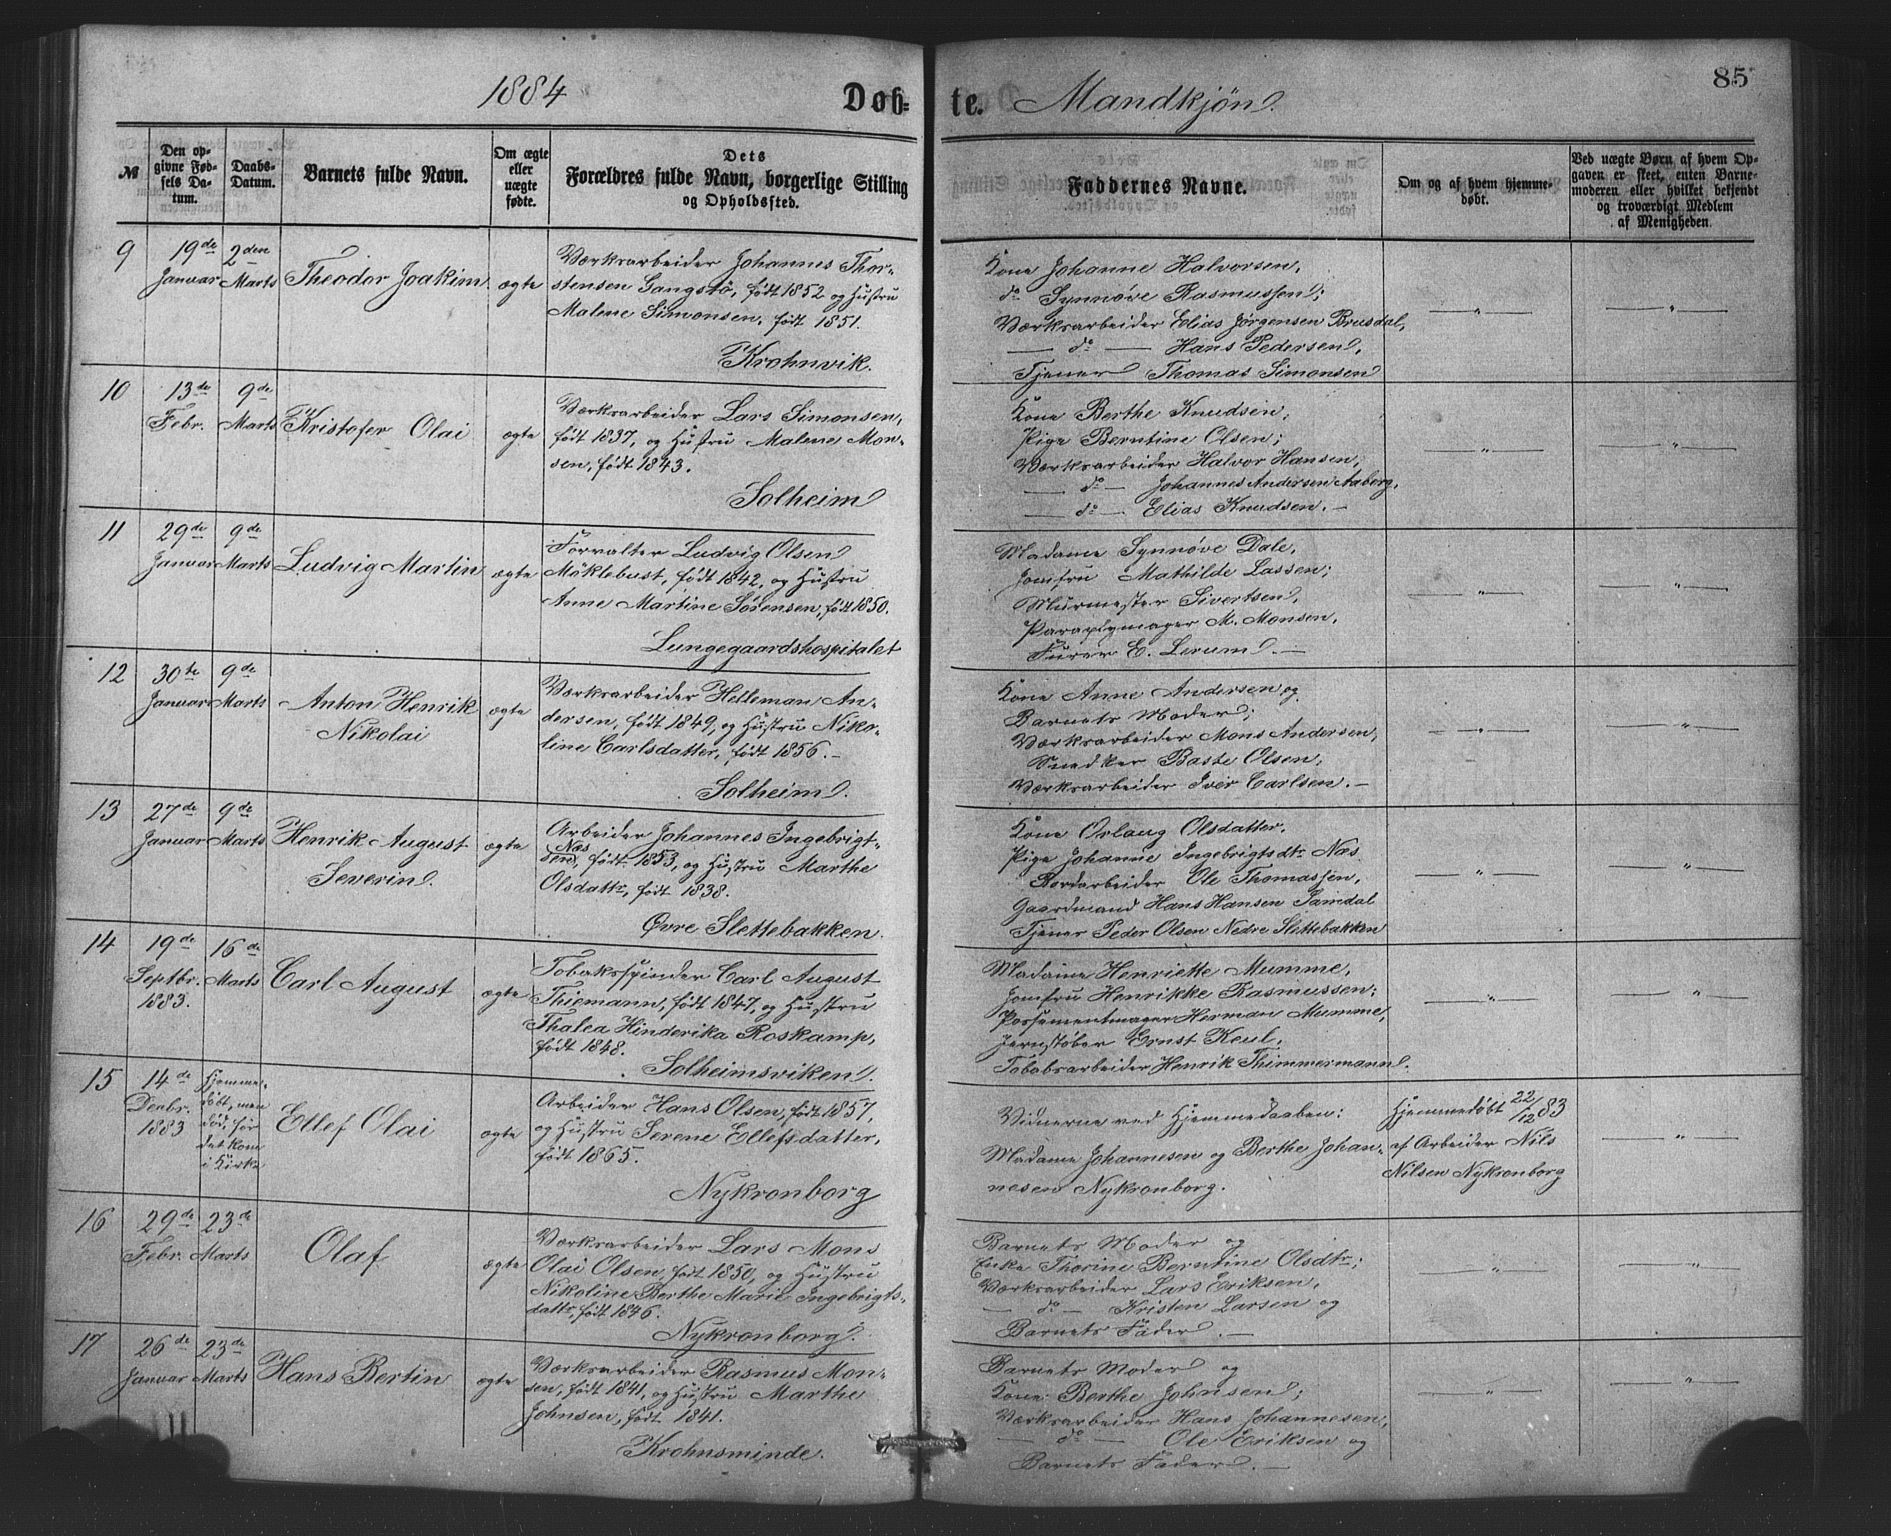 1884 Døb= te. Mandkjøn. 85
№
Den op-
givne Fød-
sels Da-
tum.
Daabs-
Datum.
Barnets fulde Navn.
Om ægte
eller
uægte
fødte.
Dets
Forældres fulde Navn, borgerlige Stilling
og Opholdssted.
Faddernes Navne.
Om og af hvem hjemme-
døbt.
Ved uægte Børn af hvem Op-
gaven er skeet, enten Barne-
moderen eller hvilket bekjendt
og troværdigt Medlem
af Menigheden.
9
19de
Januar
2den
Marts
Theodor Joakim
ægte
Værksarbeider Johannes Thor-
stensen Gangstø, født 1852 og Hustru
Malene Simonsen, født 1851.
Krohnvik.
Kone Johanne Halvorsen,
do Synnøve Rasmussen;
Værksarbeider Elias Jørgensen Brusdal,
— do — Hans Pedersen,
Tjener Thomas Simonsen
— " —
— " —
10
13de
Febr.
9de
Marts
Kristofer Olai
ægte
Værksarbeider Lars Simonsen,
født 1837, og Hustru Malene Mon-
sen, født 1843.
Solheim
Kone Berthe Knudsen,
Pige Berntine Olsen;
Værksarbeider Halvor Hansen,
— do — Johannes Andersen Aaberg,
— do — Elias Knudsen. —
— " —
— " —
11
29de
Januar
9de
Marts
Ludvig Martin
ægte
Forvalter Ludvig Olsen
Møklebust, født 1842, og Hustru
Anne Martine Sørensen, født 1850.
Lungegaardshospitalet
Madame Synnøve Dale,
Jomfru Mathilde Lassen;
Murmester Sivertsen,
Paraplymager M. Monsen,
Furer E. Lerum. —
— " —
— " —
12
30te
Januar
9de
Marts
Anton Henrik
Nikolai
ægte
Værksarbeider Helleman An-
dersen, født 1849, og Hustru Niko-
line Carlsdatter, født 1856. —
Solheim.
Kone Anne Andersen og
Barnets Moder;
Værksarbeider Mons Andersen,
Snedker Baste Olsen,
Værksarbeider Iver Carlsen. —
— " —
— " —
13
27de
Januar
9de
Marts
Henrik August
Severin.
ægte
Arbeider Johannes Ingebrigt-
Næs
sen, født 1853, og Hustru Marthe
Olsdattr, født 1838.
Øvre Slettebakken.
Kone Orlaug Olsdatter,
Pige Johanne Ingebrigtsdtr Næs.
Bordarbeider Ole Thomassen,
Gaardmand Hans Hansen Samdal
Tjener Peder Olsen Nedre Slettebakken
— " —
— " —
14
19de
Septbr.
1883.
16de
Marts
Carl August
ægte
Tobaksspinder Carl August
Thiemann, født 1847, og Hustru
Thalea Hinderika Roskamp,
født 1848.
Solheimsviken.
Madame Henriette Mumme,
Jomfru Henrikke Rasmussen;
Possementmager Herman Mumme,
Jernstøber Ernst Keul,
Tobaksarbeider Henrik Thimmermann.
— " —
— " —
15
14de
Decbr.
1883
Hjemme-
døbt, men
død, før
det kom
i Kirke
Ellef Olai
ægte
Arbeider Hans Olsen, født 1857,
og Hustru Serene Ellefsdatter,
født 1865.
Nykronborg
Vidnerne ved Hjemmedaaben:
Madame Johannesen og Berthe Johan-
nesen Nykronborg.
Hjemmedøbt 22/12 83
af Arbeider Nils
Nilsen Nykronborg
— " —
16
29de
Febr.
23de
Marts
Olaf
ægte
Værksarbeider Lars Mons
Olai Olsen, født 1850, og Hustru
Nikoline Berthe Marie Ingebrigts-
dattr, født 1846.
Nykronborg.
Barnets Moder og
Enke Thorine Berntine Olsdtr;
Værksarbeider Lars Eriksen,
— do — Kristen Larsen og
Barnets Fader. —
— " —
— " —
17
26de
Januar
23de
Marts
Hans Bertin
ægte
Værksarbeider Rasmus Mon-
sen, født 1841, og Hustru Marthe
Johnsen, født 1841.
Krohnsminde.
Barnets Moder og
Kone Berthe Johnsen;
Værksarbeider Hans Johannesen,
— do — Ole Eriksen og
Barnets Fader. —
— " —
— " —